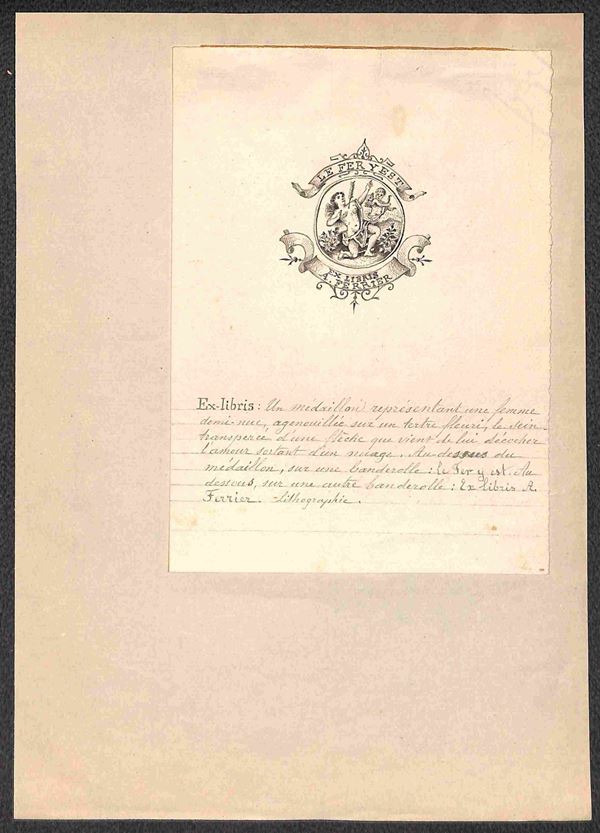 LE FER Y EST
EX LIBRIS
A. FERRIER
Ex-libris : Un médaillon représentant une femme
demi-nue, agenouillée sur un tertre fleuri, le sein
transpercé d'une flèche que vient de lui décocher
l'amour sortant d'un nuage. Au-dessus du
médaillon, sur une banderolle : Le Fer y est. Au
dessous, sur une autre banderolle : Ex libris A.
Ferrier. Lithographie.